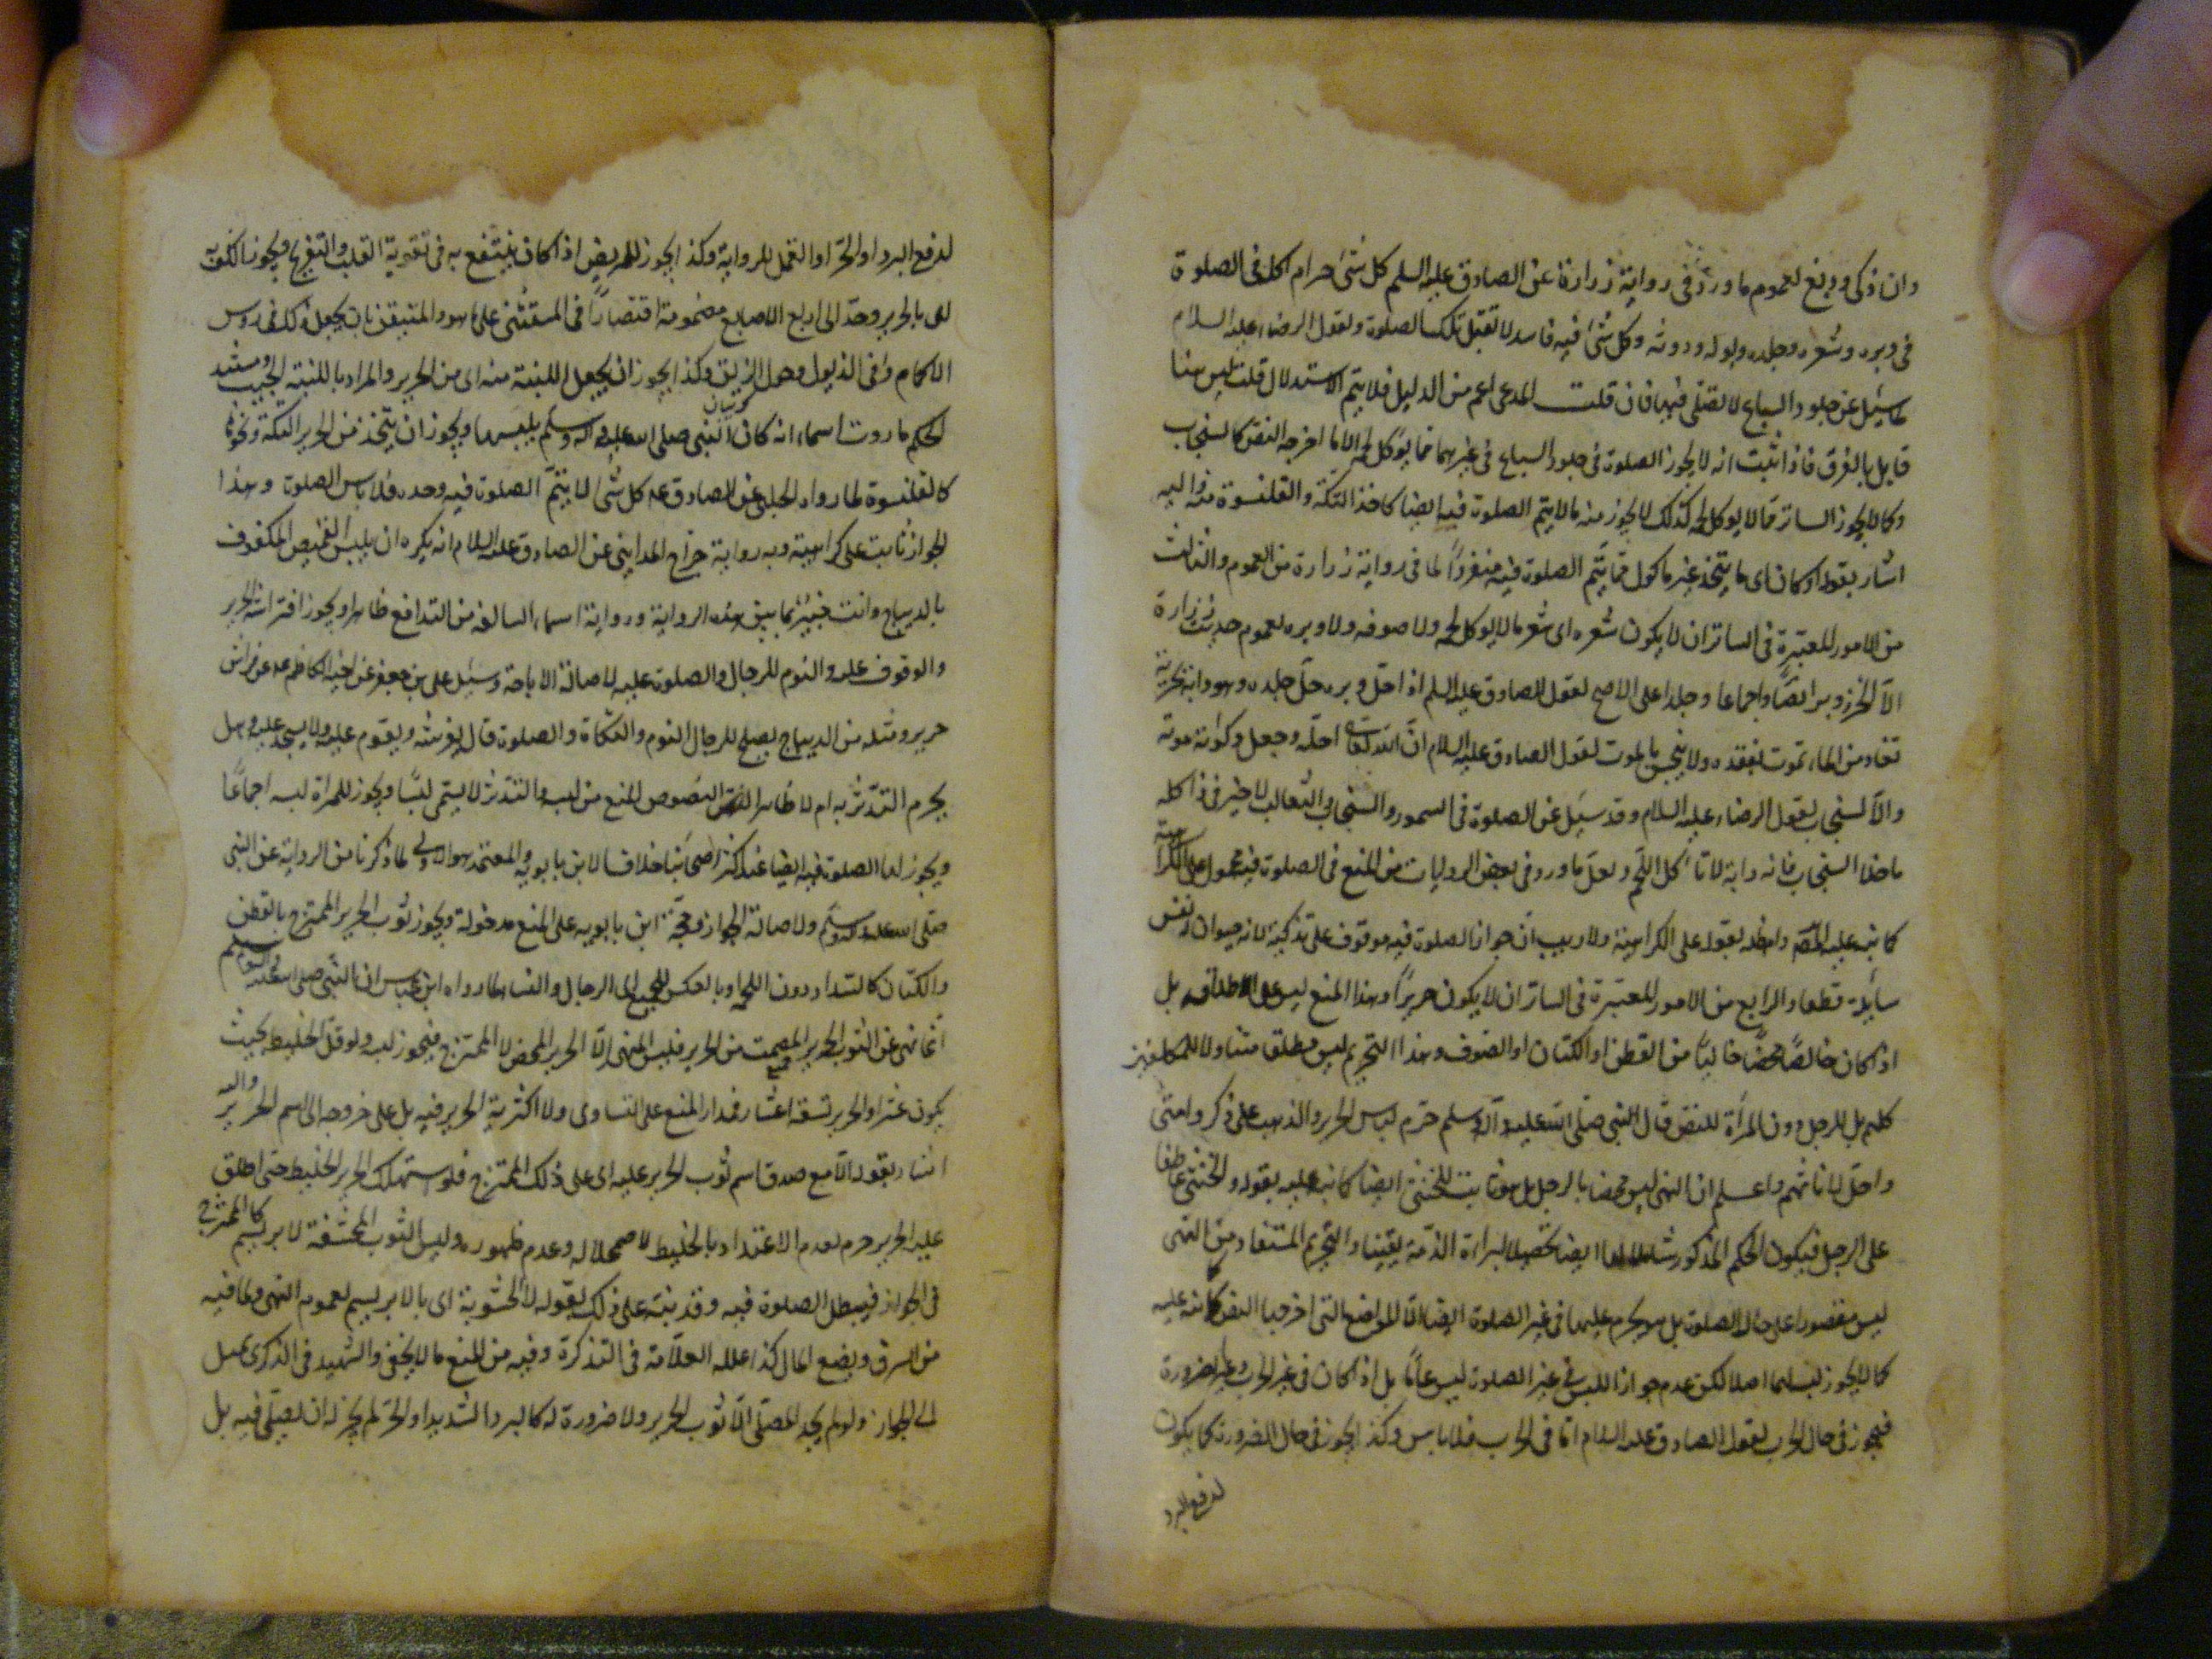 وان ذكى ودبغ لعموم ما ورد فى رواية زرارة عن الصادق عليه السلم كل شئ حرام اكله فى الصلوة
فى وبره وشعره وجلده وبوله وروثه وكل شئ فيه فاسد لا تقبل تلك الصلوة ولقول الرضا عليه السلام
لما سئل عن جلود السباع لا تصلى فيها فان قلت المدعى اعم من الدليل فلا يتم الاستدلال قلت ليس هنا
قايل بالفرق فاذا ثبت انه لا يجوز الصلوة فى جلود السباع فى غيرهما مما لا يؤكل لحمه الا ما اخرجه النص كالسنجاب
وكما لا يجوز الساتر مما لا يوكل لحمه كذلك لا يجوز منه ما لا يتم الصلوة فيه ايضا كاخذ التكة والقلنسوة منه واليه
اشار بقوله او كان اى ما يتخذ غير ماكول مما يتم الصلوة فيه منفردا لما فى رواية زرارة من العموم والثالث
من الامور المعتبرة فى الساتر ان لا يكون شعره اى شعر ما لا يوكل لحمه ولا صوفه ولا وبره لعموم حديث زرارة
الا الخز وبرا نصا واجماعا وجلدا على الاصح لقول الصادق عليه السلم اذا حل وبره حل جلده وهو دابة بحرية
تصاد من الماء تموت بفقده ولا ينجس بالموت لقول الصادق عليه السلام ان الله تعالى احله وجعل ذكوته موته
والا السنجاب لقول الرضا عليه السلام وقد سئل عن الصلوة فى السمور والسنجاب والثعالب لا خير فى ذا كله
ما خلا السنجاب فانه دابة لا تأكل اللحم ولعل ما ورد فى بعض الروايات من المنع فى الصلوة فيه محمول على الكراهية
كما نبه عليه المصّ بقوله على الكراهية ولا ريب ان جواز الصلوة فيه موقوف على تذكيته لانه حيوان ذو نفس
سائلة قطعا والرابع من الامور المعتبرة فى الساتر ان لا يكون حريرا وهذا المنع ليس على اطلاقه بل
اذا كان خالصا محضا خاليا من القطن او الكتان او الصوف وهذا التحريم ليس مطلق متناولا للمكلفين
كلهم بل للرجل دون المرأة للنص قال النبى صلى الله عليه وآله وسلم حرم لباس الحرير والذهب على ذكور امتى
واحل لاناثهم واعلم ان النهى ليس مختصا بالرجل بل هو ثابت للخنثى ايضا كما نبه عليه بقوله والخنثى عاطفا
على الرجل فيكون الحكم المذكور شاملا لها ايضا تحصيلا لبراءة الذمة يقينا والتحريم المستفاد من النهى
ليس مقصورا على حال الصلوة بل هو يحرم عليهما فى غير الصلوة ايضا الا المواضع التى اخرجها النص كما نبه عليه
كما لا يجوز لبسهما اصلا لكن عدم جواز اللبس فى غير الصلوة ليس عاما بل اذا كان فى غير الحرب وغير الضرورة
فيجوز فى حال الحرب لقول الصادق عليه السلام اما فى الحرب فلا باس وكذا يجوز فى حال الضرورة كما يكون
لدفع البرد
لدفع البرد او الحر او القمل للرواية وكذا يجوز للمريض اذا كان ينتفع به فى تقوية القلب والتفريح ويجوز الكف به
اى بالحرير وحد الى اربع الاصابع مضمومة اقتصارا فى المستثنى على هو المتيقن بان يجعل ذلك فى روس
الاكمام وفى الذيول وحول الزيق وكذا يجوز ان يجعل اللبنة منه اى من الحرير والمراد باللبنة الجيب ومستند
كريبان
الحكم ما روت اسماء انه كان النبى صلى الله عليه واله وسلم يلبسها ويجوز ان يتخذ من الحرير التكة ونحوها
كالقلنسوة لما رواه الحلبى عن الصادق عه كل شئ لا يتم الصلوة فيه وحده فلا باس الصلوة وهذا
الجواز ثابت على كراهية وبه رواية جراح المداينى عن الصادق عليه السلام انه يكره ان يلبس القميص المكفوف
بالديباج وانت خبير بما بين هذه الرواية ورواية اسماء السالفة من التدافع ظاهرا ويجوز افتراش الحرير
والوقوف عليه والنوم للرجال والصلوة عليه لاصالة الاباحة وسئل على بن جعفر عن اخيه الكاظم عه عن فراش
حرير ومثله من الديباج يصلح للرجال النوم والتكأة والصلوة قال يفرشه ويقوم عليه ولا يسجد عليه وهل
يحرم التدثر به ام لا ظاهر النصوص المنع من لبسه والتدثر لا يسمى لبسا ويجوز للمرأة لبسه اجماعا
ويجوز لها الصلوة فيه ايضا عند اكثر اصحابنا خلافا لابن بابويه والمعتمد هو الاولى لما ذكرنا من الرواية عن النبى
صلى الله عليه وآله وسلم ولاصالة الجواز وحجة ابن بابويه على المنع مدخولة ويجوز ثوب الحرير الممتزج بالقطن
والكتان كالسدا دون اللحمة او بالعكس للجميع اى الرجال والنساء لما رواه ابن عباس ان النبى صلى الله عليه واله وسلم
انما نهى عن الثوب الحرير المصمت من الحرير فليس المنهى الا الحرير المحض لا الممتزج فيجوز لبسه ولو قل الخليط بحيث
يكون عشرا والحرير تسعة اعشار فمدار المنع على التساوى ولا اكثرية الحرير فيه بل على خروجه الى اسم الحرير واليه
اشار بقوله الا مع صدق اسم ثوب الحرير عليه اى على ذلك الممتزج فلو استهلك الحرير الخليط حتى اطلق
عليه الحرير حرم لعدم الاعتداد بالخليط لاضمحلاله وعدم ظهوره وليس الثوب المحشوة لابريسم كالممتزج
فى الجواز فيبطل الصلوة فيه وقد نبه على ذلك بقوله لا المحشو به اى بالابريسم لعموم النهى ولما فيه
من السرف وبضع المال كذا علله العلامة فى التذكرة وفيه من المنع ما لا يخفى والشهيد فى الذكرى يميل
الى الجواز ولو لم يجد المصلى الا ثوب الحرير ولا ضرورة له كالبرد الشديد او الحر لم يجز له ان يصلى فيه بل